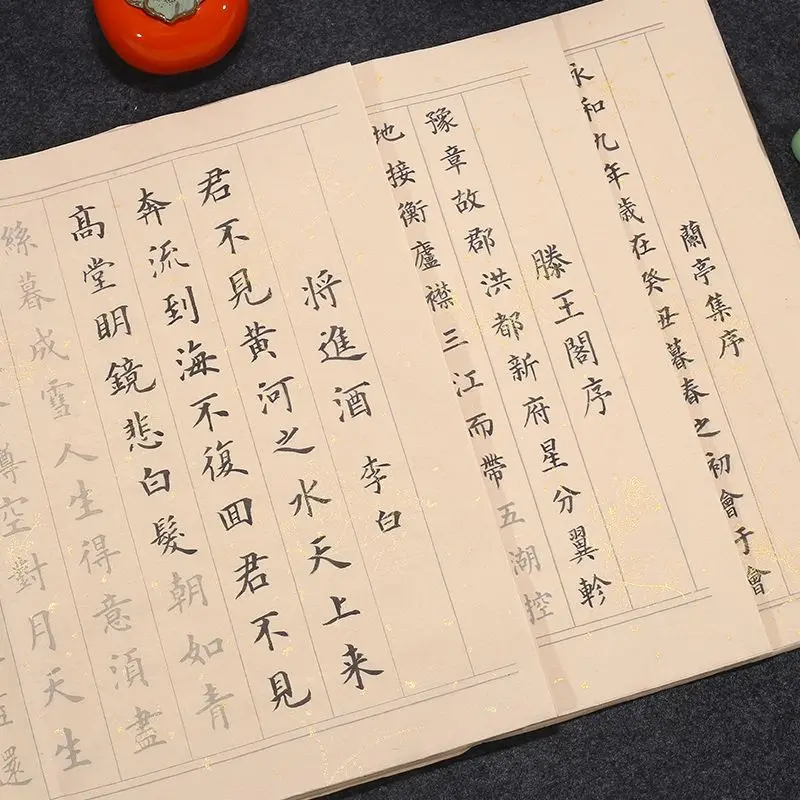 蘭亭集序
永和九年歲在癸丑暮春之初會于會
滕王閣序
豫章故郡洪都新府星分翼軫
地接衡廬襟三江而帶五湖控
將進酒 李白
君不見黃河之水天上来
奔流到海不復回君不見
高堂明鏡悲白髮朝如青
絲暮成雪人生得意須盡
樽空對月天生
還